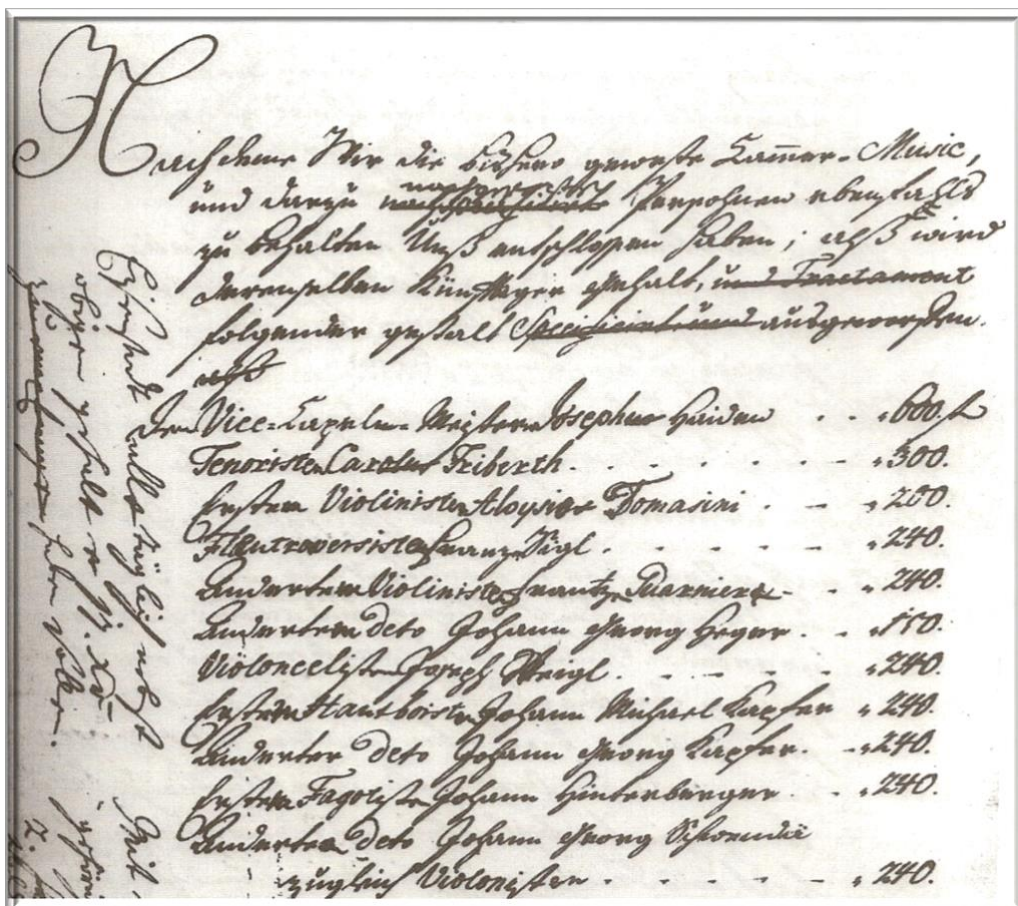 Nachdeme Wir die bishero geweste Cammer-Music,
und darzu Persohnen ebenfahls
zu behalten Unß entschlossen haben; alß wird
derenselben Künfftiger Gehalt, und Tractament
folgender gestalt und ausgeworffen.
alß
Dem Vice-Capeln-Meistern Josephus Haiden . . . 600. f
Tenoristen Carolus Friberth . . . . . . 300.
Erstern Violinisten Aloysius Tomasini . - 200.
Flautraversisten Franz Sigl . . . . . 240.
Anderten Violinisten Frantz Guarnier - . 240.
Anderten deto Johann Georg Heger . - 150.
Violoncelisten Joseph Weigl . . . . 240.
Erstern Hautboisten Johann Michael Kapfer 240.
Anderter deto Johann Georg Kapfer . - 240.
Erstern Fagotisten Johann Hinterberger . . 240.
Anderten deto Johann Georg Schwenda
zugleich Violonisten - . . . . 240.
täglich nebst
obiger gestalt
haben sollen.